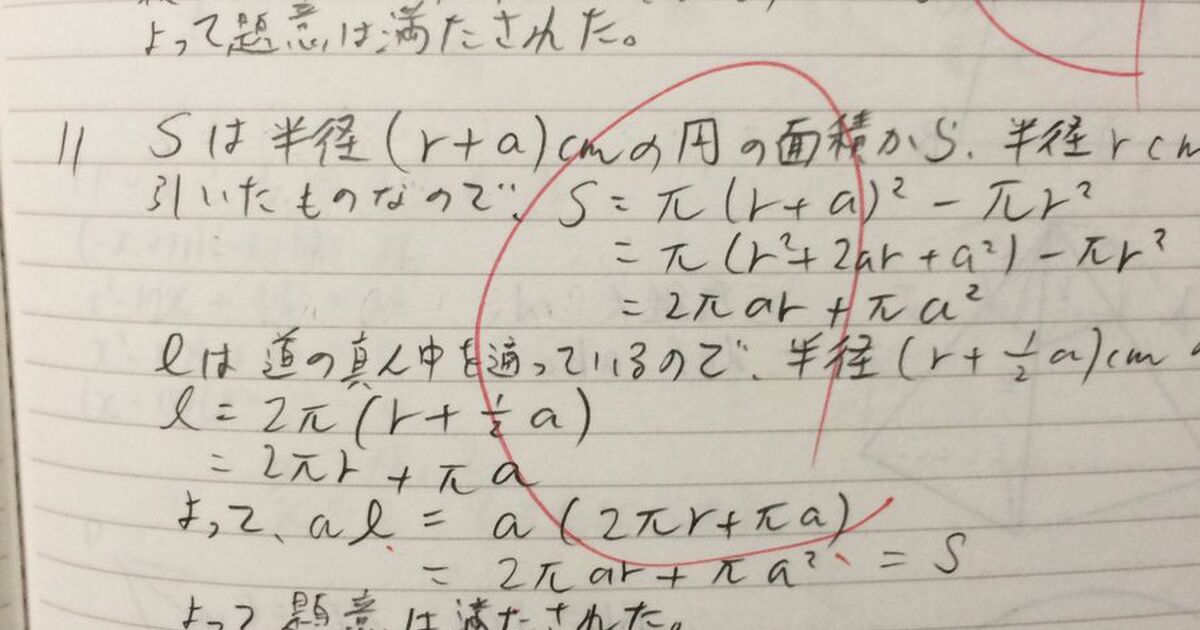 よって題意は満たされた。
11 Sは半径(r+a)cmの円の面積から、半径rcm
引いたものなので、S=π(r+a)²-πr²
=π(r²+2ar+a²)-πr²
=2πar+πa²
ℓは道の真ん中を通っているので、半径(r+½a)cm
ℓ=2π(r+½a)
=2πr+πa
よって、aℓ=a(2πr+πa)
=2πar+πa²=S
よって題意は満たされた。